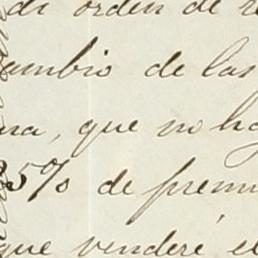 di orden de re
ambio de las
na, que no ha
25% de premi
que venderé el